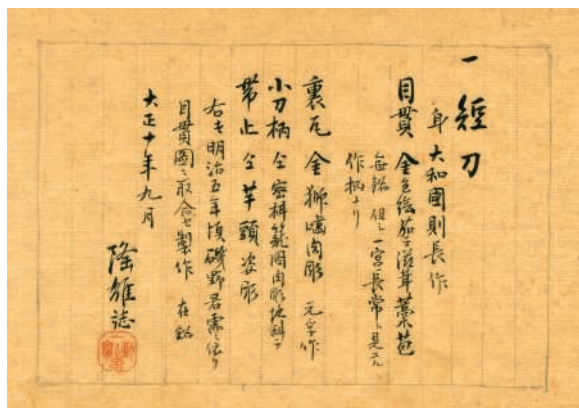 一 經刀
身 大和國則長作
目貫 金色絵茄子 茸藁苞
無銘 但シ一宮長常ト見
作柄ナリ
裏瓦 金獅噛肉彫 元孚作
小刀柄 仝 蜜柑籠図肉彫地斜子
帯止 仝 芋頭姿彫
右 明治五年頃磯野君需ニ依リ
目貫圖ニ取合セ製作 在銘
大正十年九月
隆雄誌